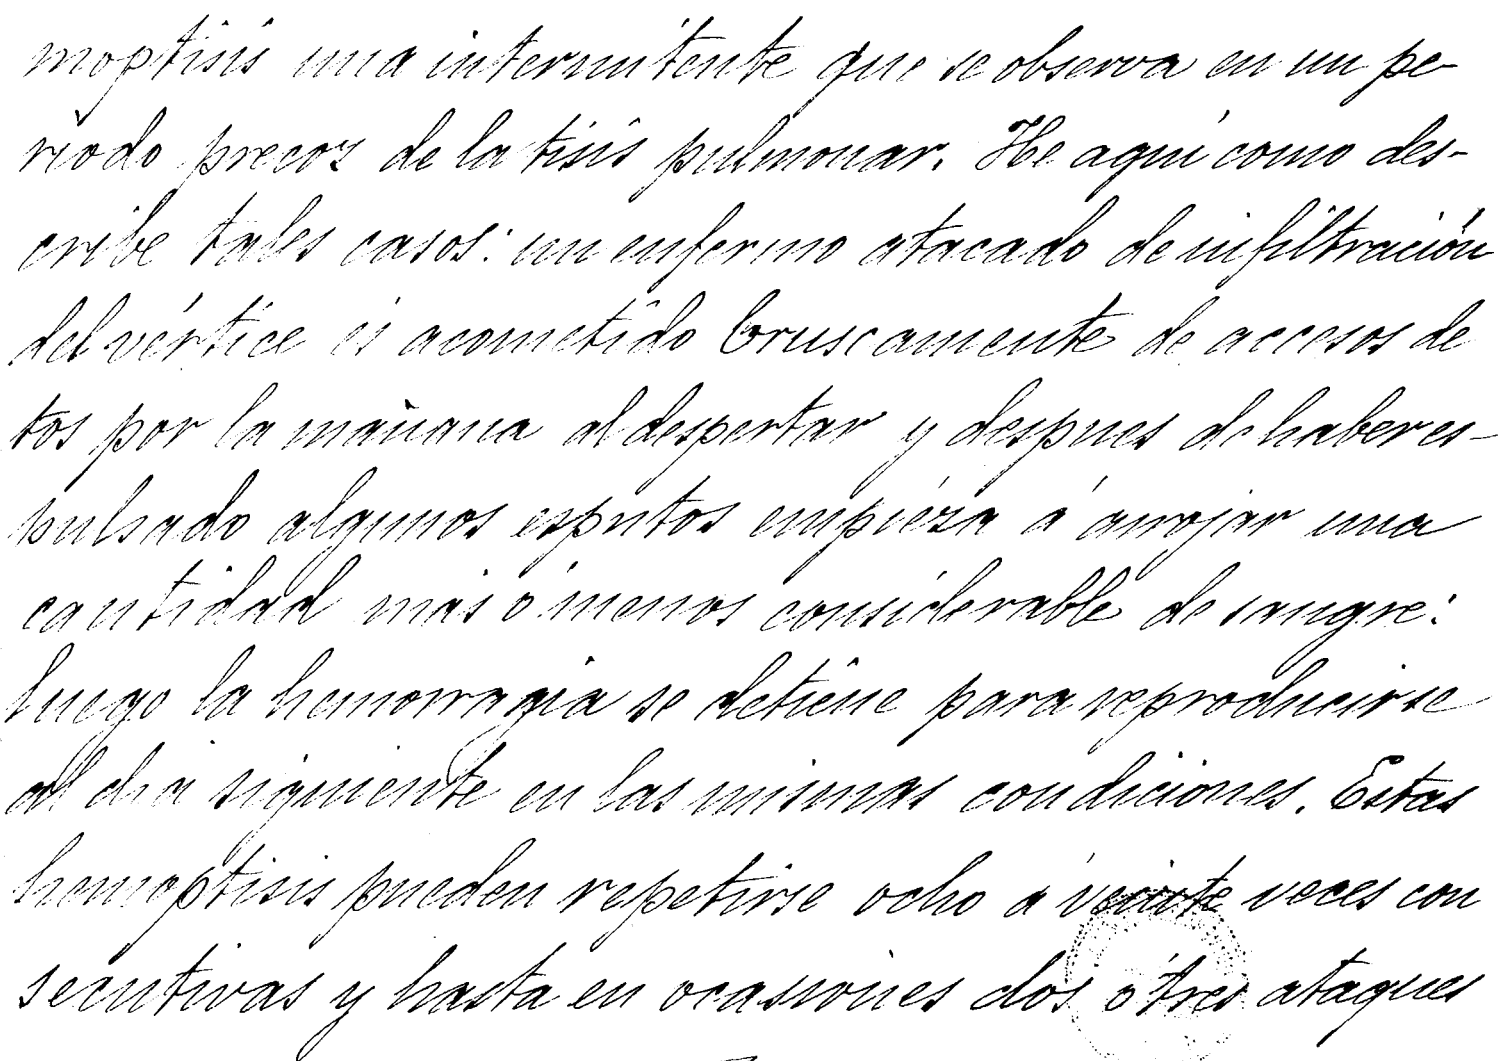 moptisis una intermitente que se observa en un pe-
riodo precoz de la tisis pulmonar. He aquí como des-
cribe tales casos: un enfermo atacado de infiltración
del vértice es acometido bruscamente de accesos de
tos por la mañana al despertar y despues de haber es-
pulsado algunos esputos empieza á arrojar una
cantidad mas ó menos considerable de sangre:
luego la hemorragia se detiene para reproducirse
al dia siguiente en las mismas condiciones. Estas
hemoptisis pueden repetirse ocho á veinte veces con
secutivas y hasta en ocasiones dos ó tres ataques